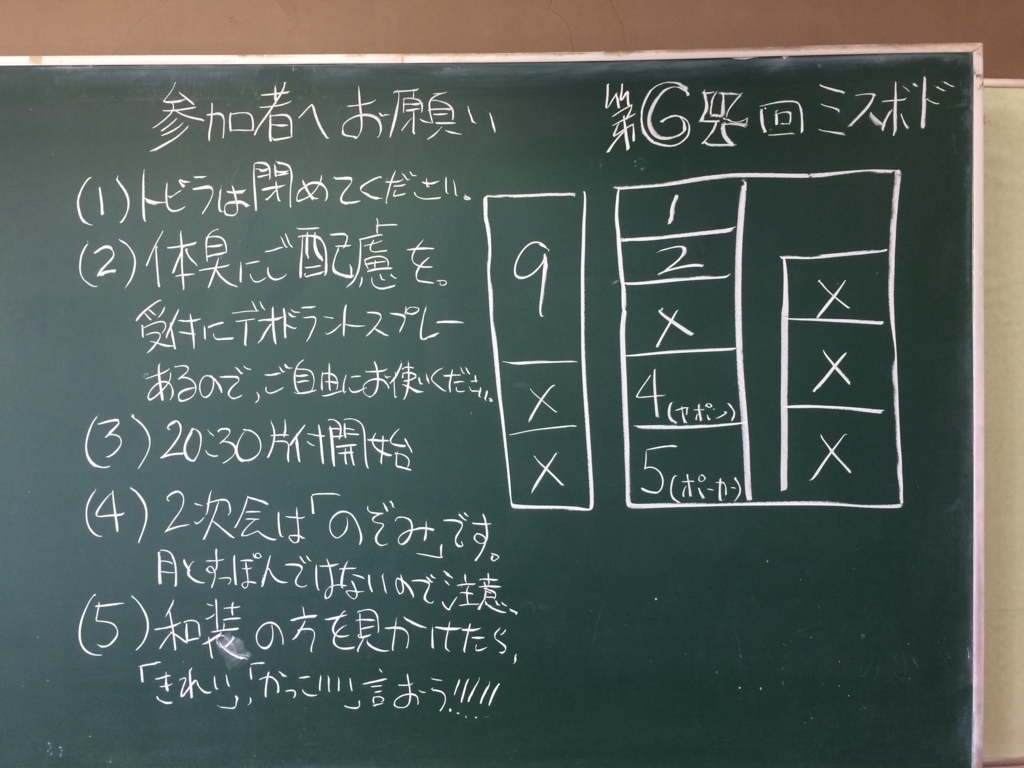 参加者へお願い
(1)トビラは閉めてください。
(2)体臭にご配慮を。
受付にデオドラントスプレー
あるので、ご自由にお使いください。
(3)20:30片付開始
(4)2次会は「のぞみ」です。
月とすっぽんではないので注意、
(5)和装の方を見かけたら,
「きれい」,「かっこいい」言おう!!!!!
第64回ミスボド
9
×
×
1
2
×
4(ヤポン)
5(ポーカー)
×
×
×